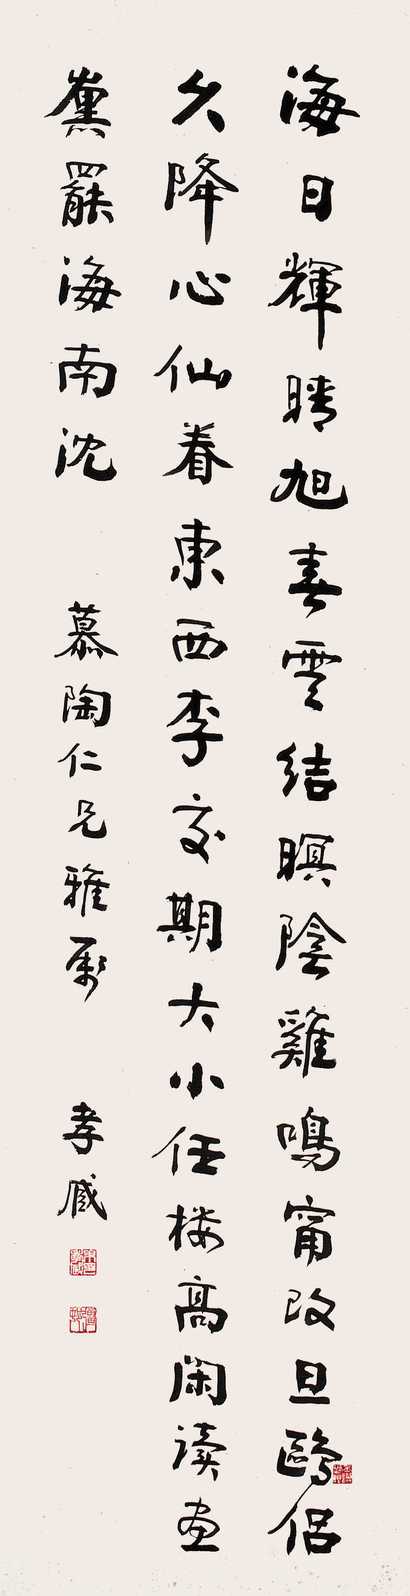 海日輝晴旭春雲結暝陰雞鳴甯改旦鷗侶
久降心仙眷東西李交期大小任楼高閑读画
熏罷海南沈
慕陶仁兄雅属
孝臧